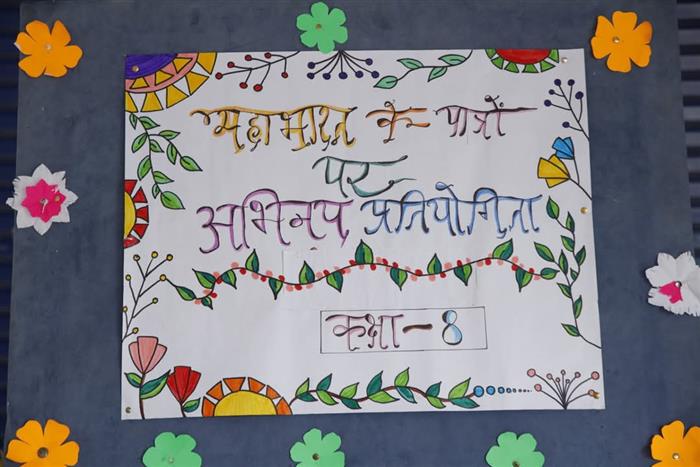 महाभारत के पात्रों
पर
अभिनय प्रतियोगिता
कक्षा - 8